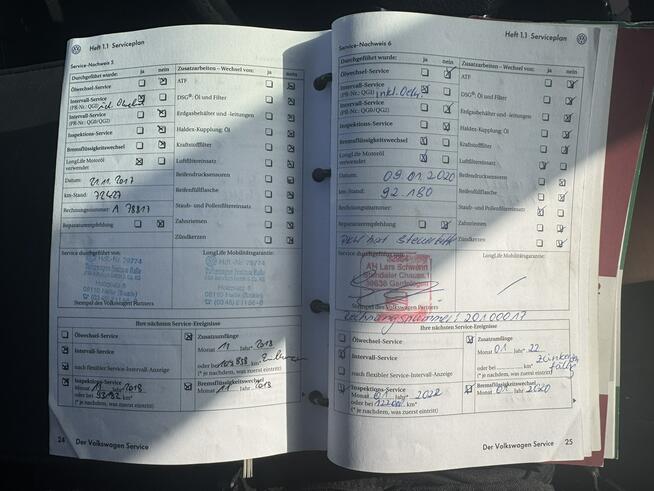 Heft 1.1 Serviceplan
Service-Nachweis 5
Durchgeführt wurde: ja nein
Ölwechsel-Service
Intervall-Service
(PR-Nr.: QG1)
Intervall-Service
(PR-Nr.: QG0/QG2)
Inspektions-Service
Bremsflüssigkeitswechsel
LongLife Motoröl
verwendet
Datum: 21.11.2017
km-Stand: 72427
Rechnungsnummer: A 78817
Reparaturempfehlung
Zusatzarbeiten – Wechsel von: ja nein
ATF
DSG®: Öl und Filter
Erdgasbehälter und -leitungen
Haldex-Kupplung: Öl
Kraftstofffilter
Luftfiltereinsatz
Reifendrucksensoren
Reifenfüllflasche
Staub- und Pollenfiltereinsatz
Zahnriemen
Zündkerzen
Service durchgeführt von:
LongLife Mobilitätsgarantie:
Stempel des Volkswagen Partners
Ihre nächsten Service-Ereignisse
Ölwechsel-Service
Intervall-Service
nach flexibler Service-Intervall-Anzeige
Inspektions-Service
Monat 11 Jahr* 2018
oder bei km*
(* je nachdem, was zuerst eintritt)
Zusatzumfänge
Monat 11 Jahr* 2018
oder bei
Bremsflüssigkeitswechsel
Monat 11 Jahr 2018
24 Der Volkswagen Service
Heft 1.1 Serviceplan
Service-Nachweis 6
Durchgeführt wurde: ja nein
Ölwechsel-Service
Intervall-Service
(PR-Nr.: QG1) inkl. Oel
Intervall-Service
(PR-Nr.: QG0/QG2)
Inspektions-Service
Bremsflüssigkeitswechsel
LongLife Motoröl
verwendet
Datum: 09.01.2020
km-Stand: 92.180
Rechnungsnummer:
Reparaturempfehlung
Zusatzarbeiten – Wechsel von: ja nein
ATF
DSG®: Öl und Filter
Erdgasbehälter und -leitungen
Haldex-Kupplung: Öl
Kraftstofffilter
Luftfiltereinsatz
Reifendrucksensoren
Reifenfüllflasche
Staub- und Pollenfiltereinsatz
Zahnriemen
Zündkerzen
Service durchgeführt von:
LongLife Mobilitätsgarantie:
AH Lars Schwenn
Stendaler Chauss.1
39638 Gardelegen
Stempel des Volkswagen Partners
Rechnungsnummer: 20100017
Ihre nächsten Service-Ereignisse
Ölwechsel-Service
Intervall-Service
nach flexibler Service-Intervall-Anzeige
Inspektions-Service
Monat 01 Jahr* 2022
oder bei km*
(* je nachdem, was zuerst eintritt)
Zusatzumfänge
Monat 01 Jahr* 22
oder bei km*
Bremsflüssigkeitswechsel
Monat 01 Jahr 2020
Der Volkswagen Service 25